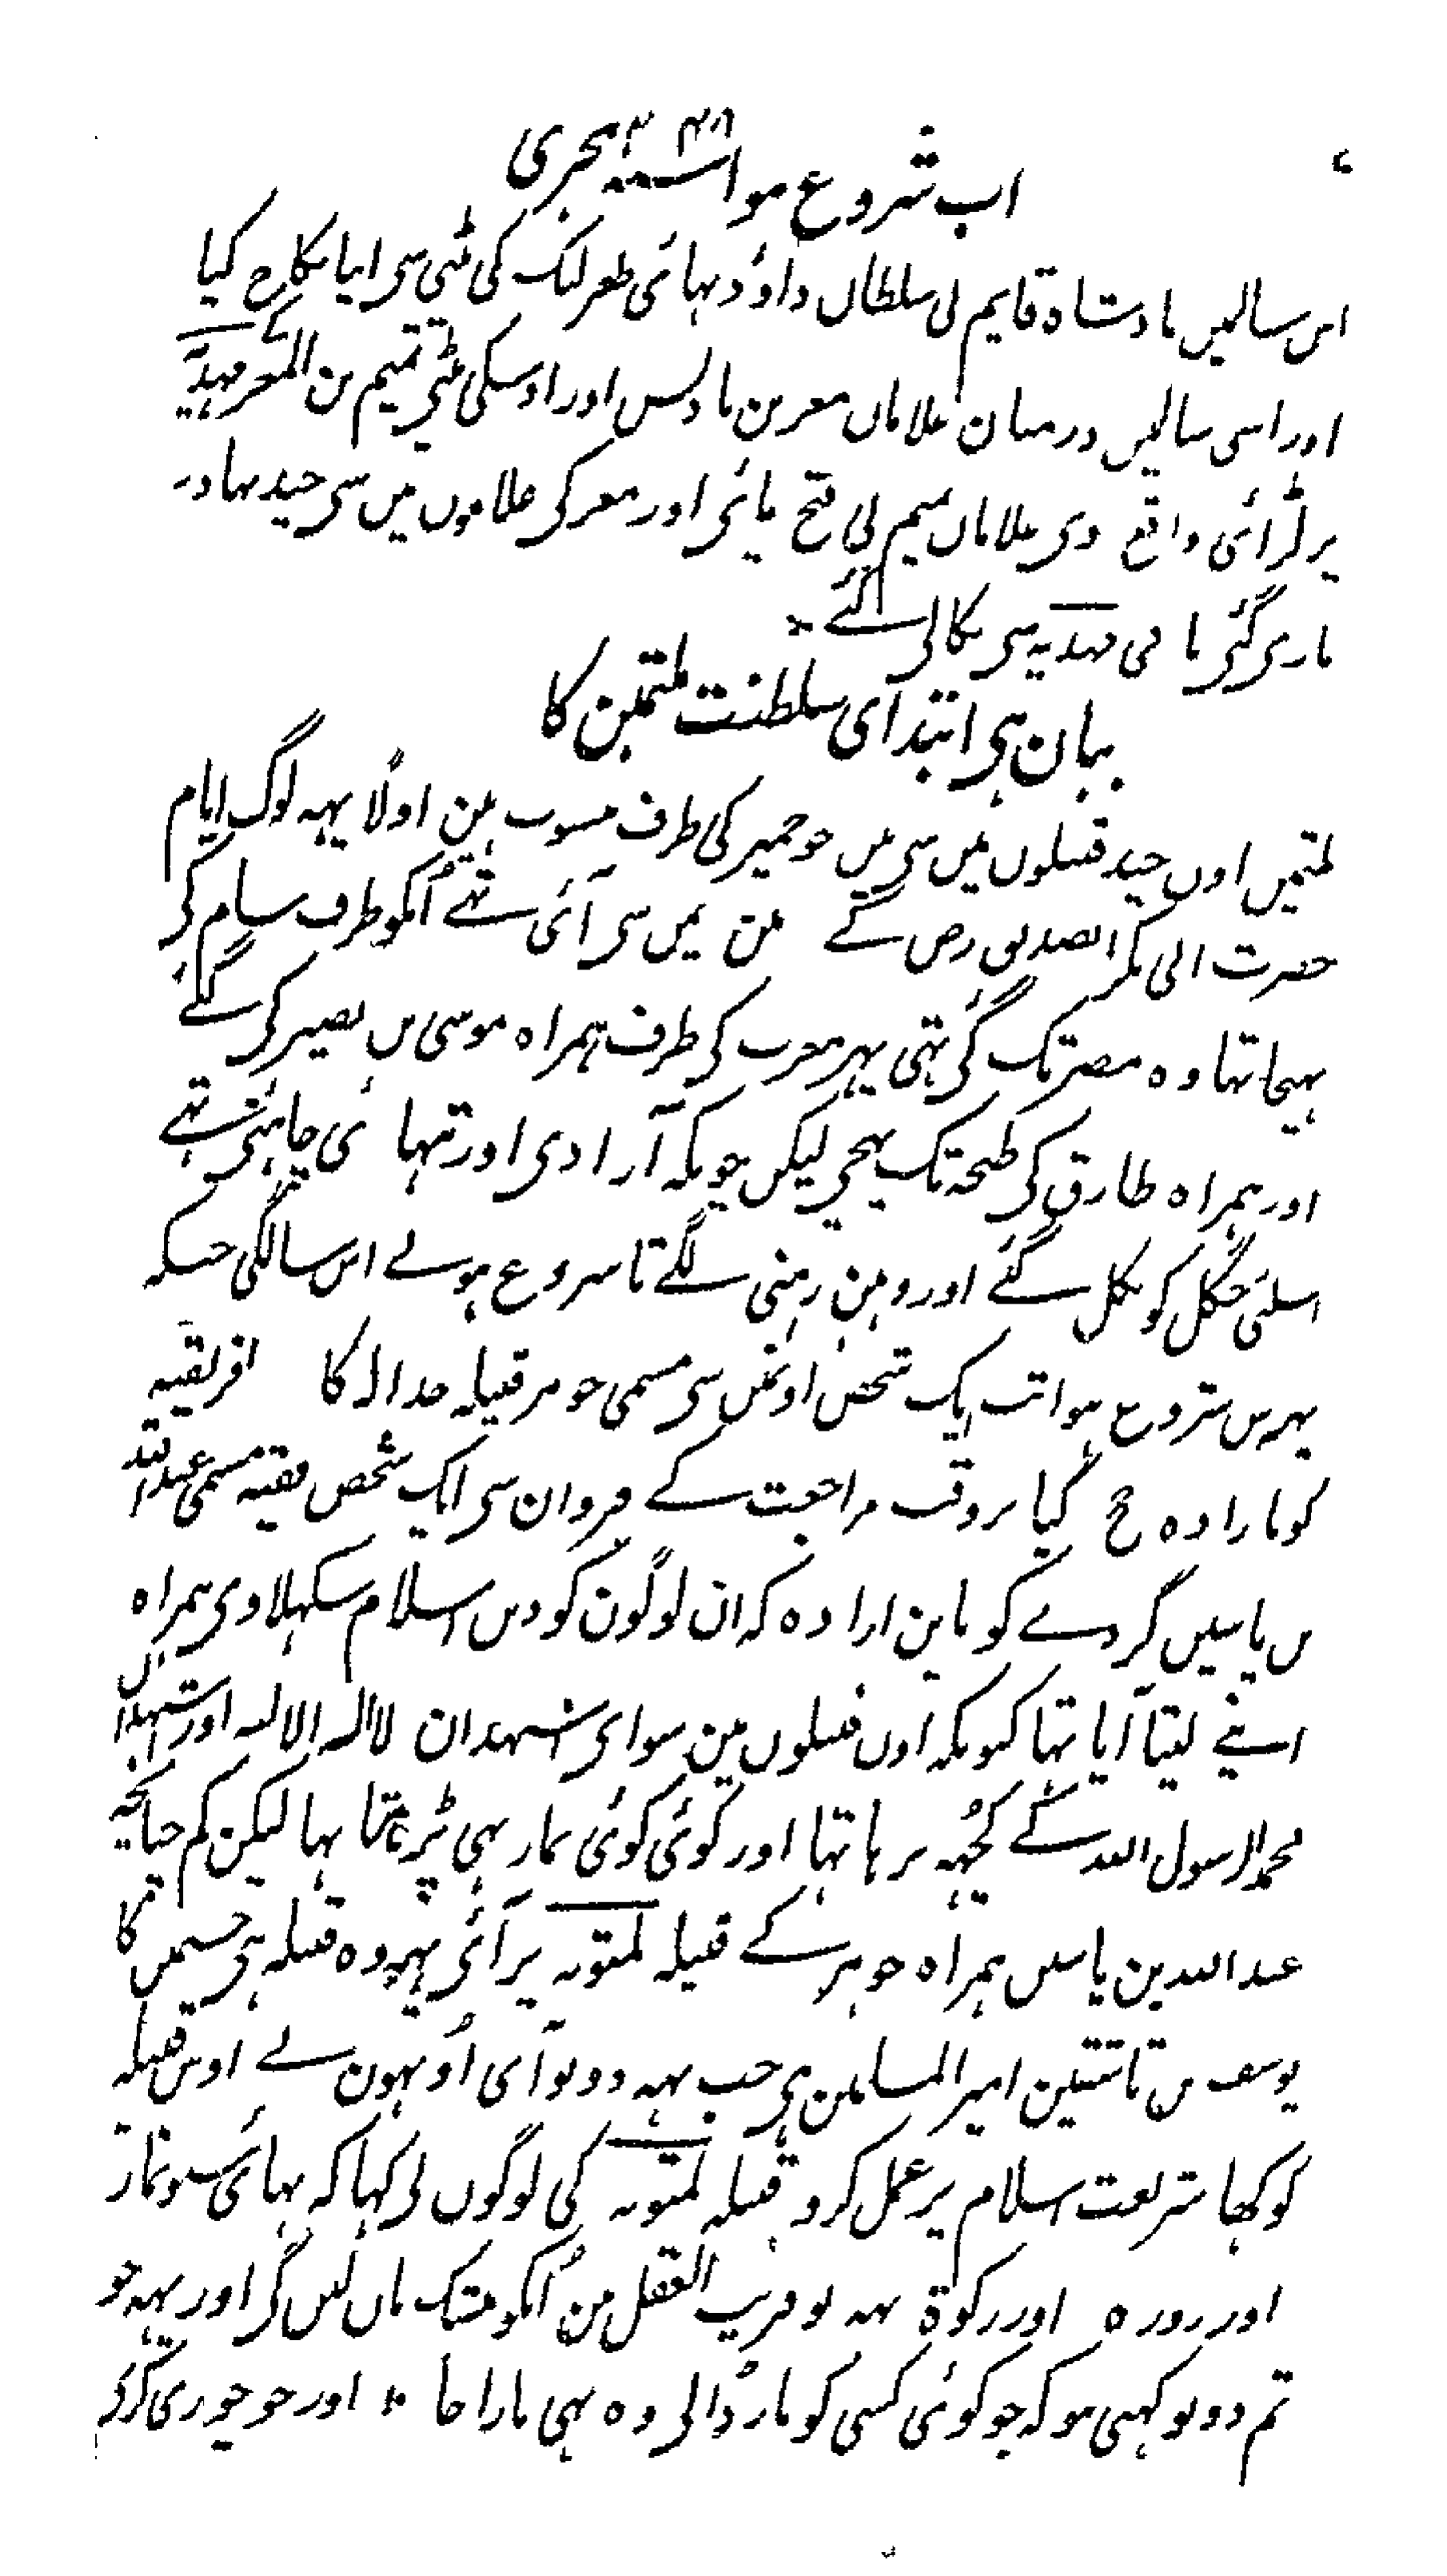 اب شروع ہوا سنہ ۴۴۸ ہجری
اس سالمیں بادشاہ قایم نی سلطان داؤد بہائی طغرلبک کی بیٹی سی اپنا نکاح کیا
اور اسی سالمیں درمیان غلامان معز بن بادیس اور اوسکی بیٹی تمیم بن المعز کے مہدیہ
پر لڑائی واقع ہوی غلامان تمیم نی فتح پائی اور معز کی غلاموں میں سی چند بہادر
ماری گئی باقی مہدیہ سی نکالی گئے
بیان ہی ابتدای سلطنت ملثمین کا
ملثمین اون چند قبیلوں میں سی ہیں جو حمیر کی طرف منسوب ہین اولاً یہہ لوگ ایام
حضرت ابی بکر الصدیق رض کے مین یمن سی آئی تہے اُنکو طرف شام کی
بہیجا تہا وہ مصر تک گئی تہی پہر مغرب کی طرف ہمراہ موسی بن نصیر کی گئے
اور ہمراہ طارق کی طنجہ تک پہنچی لیکن چونکہ آزادی اور تنہائی چاہتی تہے
اسلئی جنگل کو نکل گئے اور وہین رہنی لگے تا شروع ہونے اس سالکی جسکہ
پہر سن شروع ہوا تب ایک شخص اونمیں سی مسمی جوہر قبیلہ جدالہ کا افریقیہ
کو بارادہ حج گیا بروقت مراجعت کے قیروان سی ایک شخص فقیہ مسمی عبداللہ
بن یاسین گزولے کو باین ارادہ کہ ان لوگون کو دین اسلام سکہلاوی ہمراہ
اپنے لیتا آیا تہا کیونکہ اون قبیلوں مین سوای اشہد ان لا الہ الا اللہ اور اشہد ان
محمد الرسول اللہ کے کچہہ نرہا تہا اور کوئی کوئی نماز بہی پڑھتا تہا لیکن کم چنانچہ
عبد اللہ بن یاسین ہمراہ جوہر کے قبیلہ لمتونہ پر آئی یہہ وہ قبیلہ ہی جسمیں کا
یوسف بن تاشفین امیر المسلمین ہی جب یہہ دونو آئی اُونہون نے اوس قبیلہ
کو کہا شریعت اسلام پر عمل کرو قبیلہ لمتونہ کی لوگوں نی کہا کہ بہائی سنو نماز
اور روزہ اور زکوۃ یہہ تو قریب العقل ہین اُنکو بیشک مان لیں گی اور یہہ جو
تم دونو کہتی ہو کہ جو کوئی کسی کو مار ڈالی وہ بہی مارا جا اور جو چوری کری